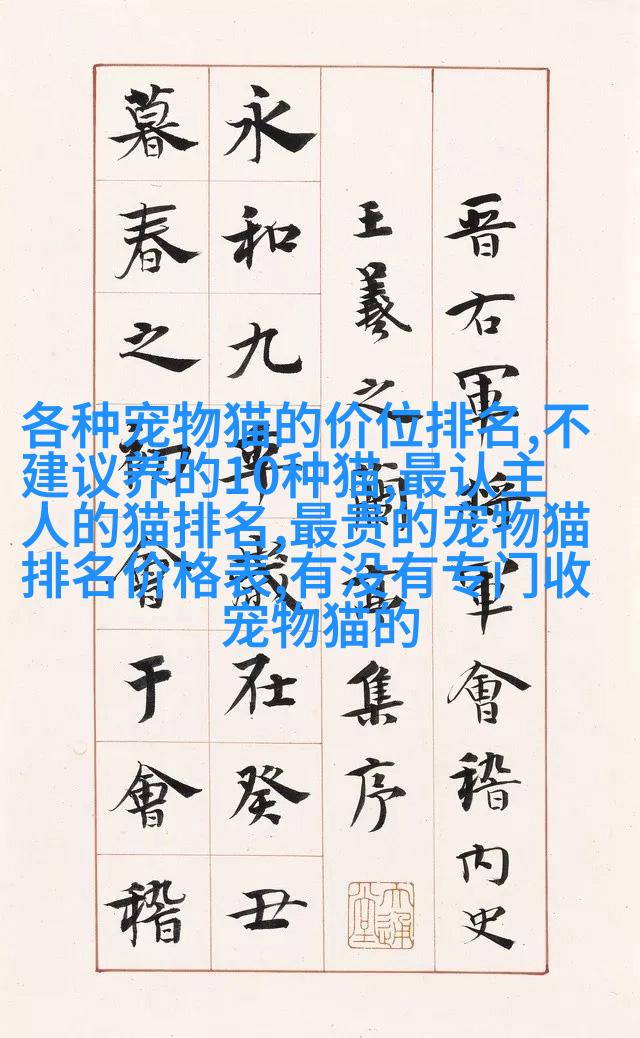 晋右軍將軍會稽内史
王羲之蘭亭集序
永和九年歲在癸丑
暮春之初會于會稽
各种宠物猫的价位排名,不
建议养的10种猫,最认主
人的猫排名,最贵的宠物猫
排名价格表,有没有专门收
宠物猫的